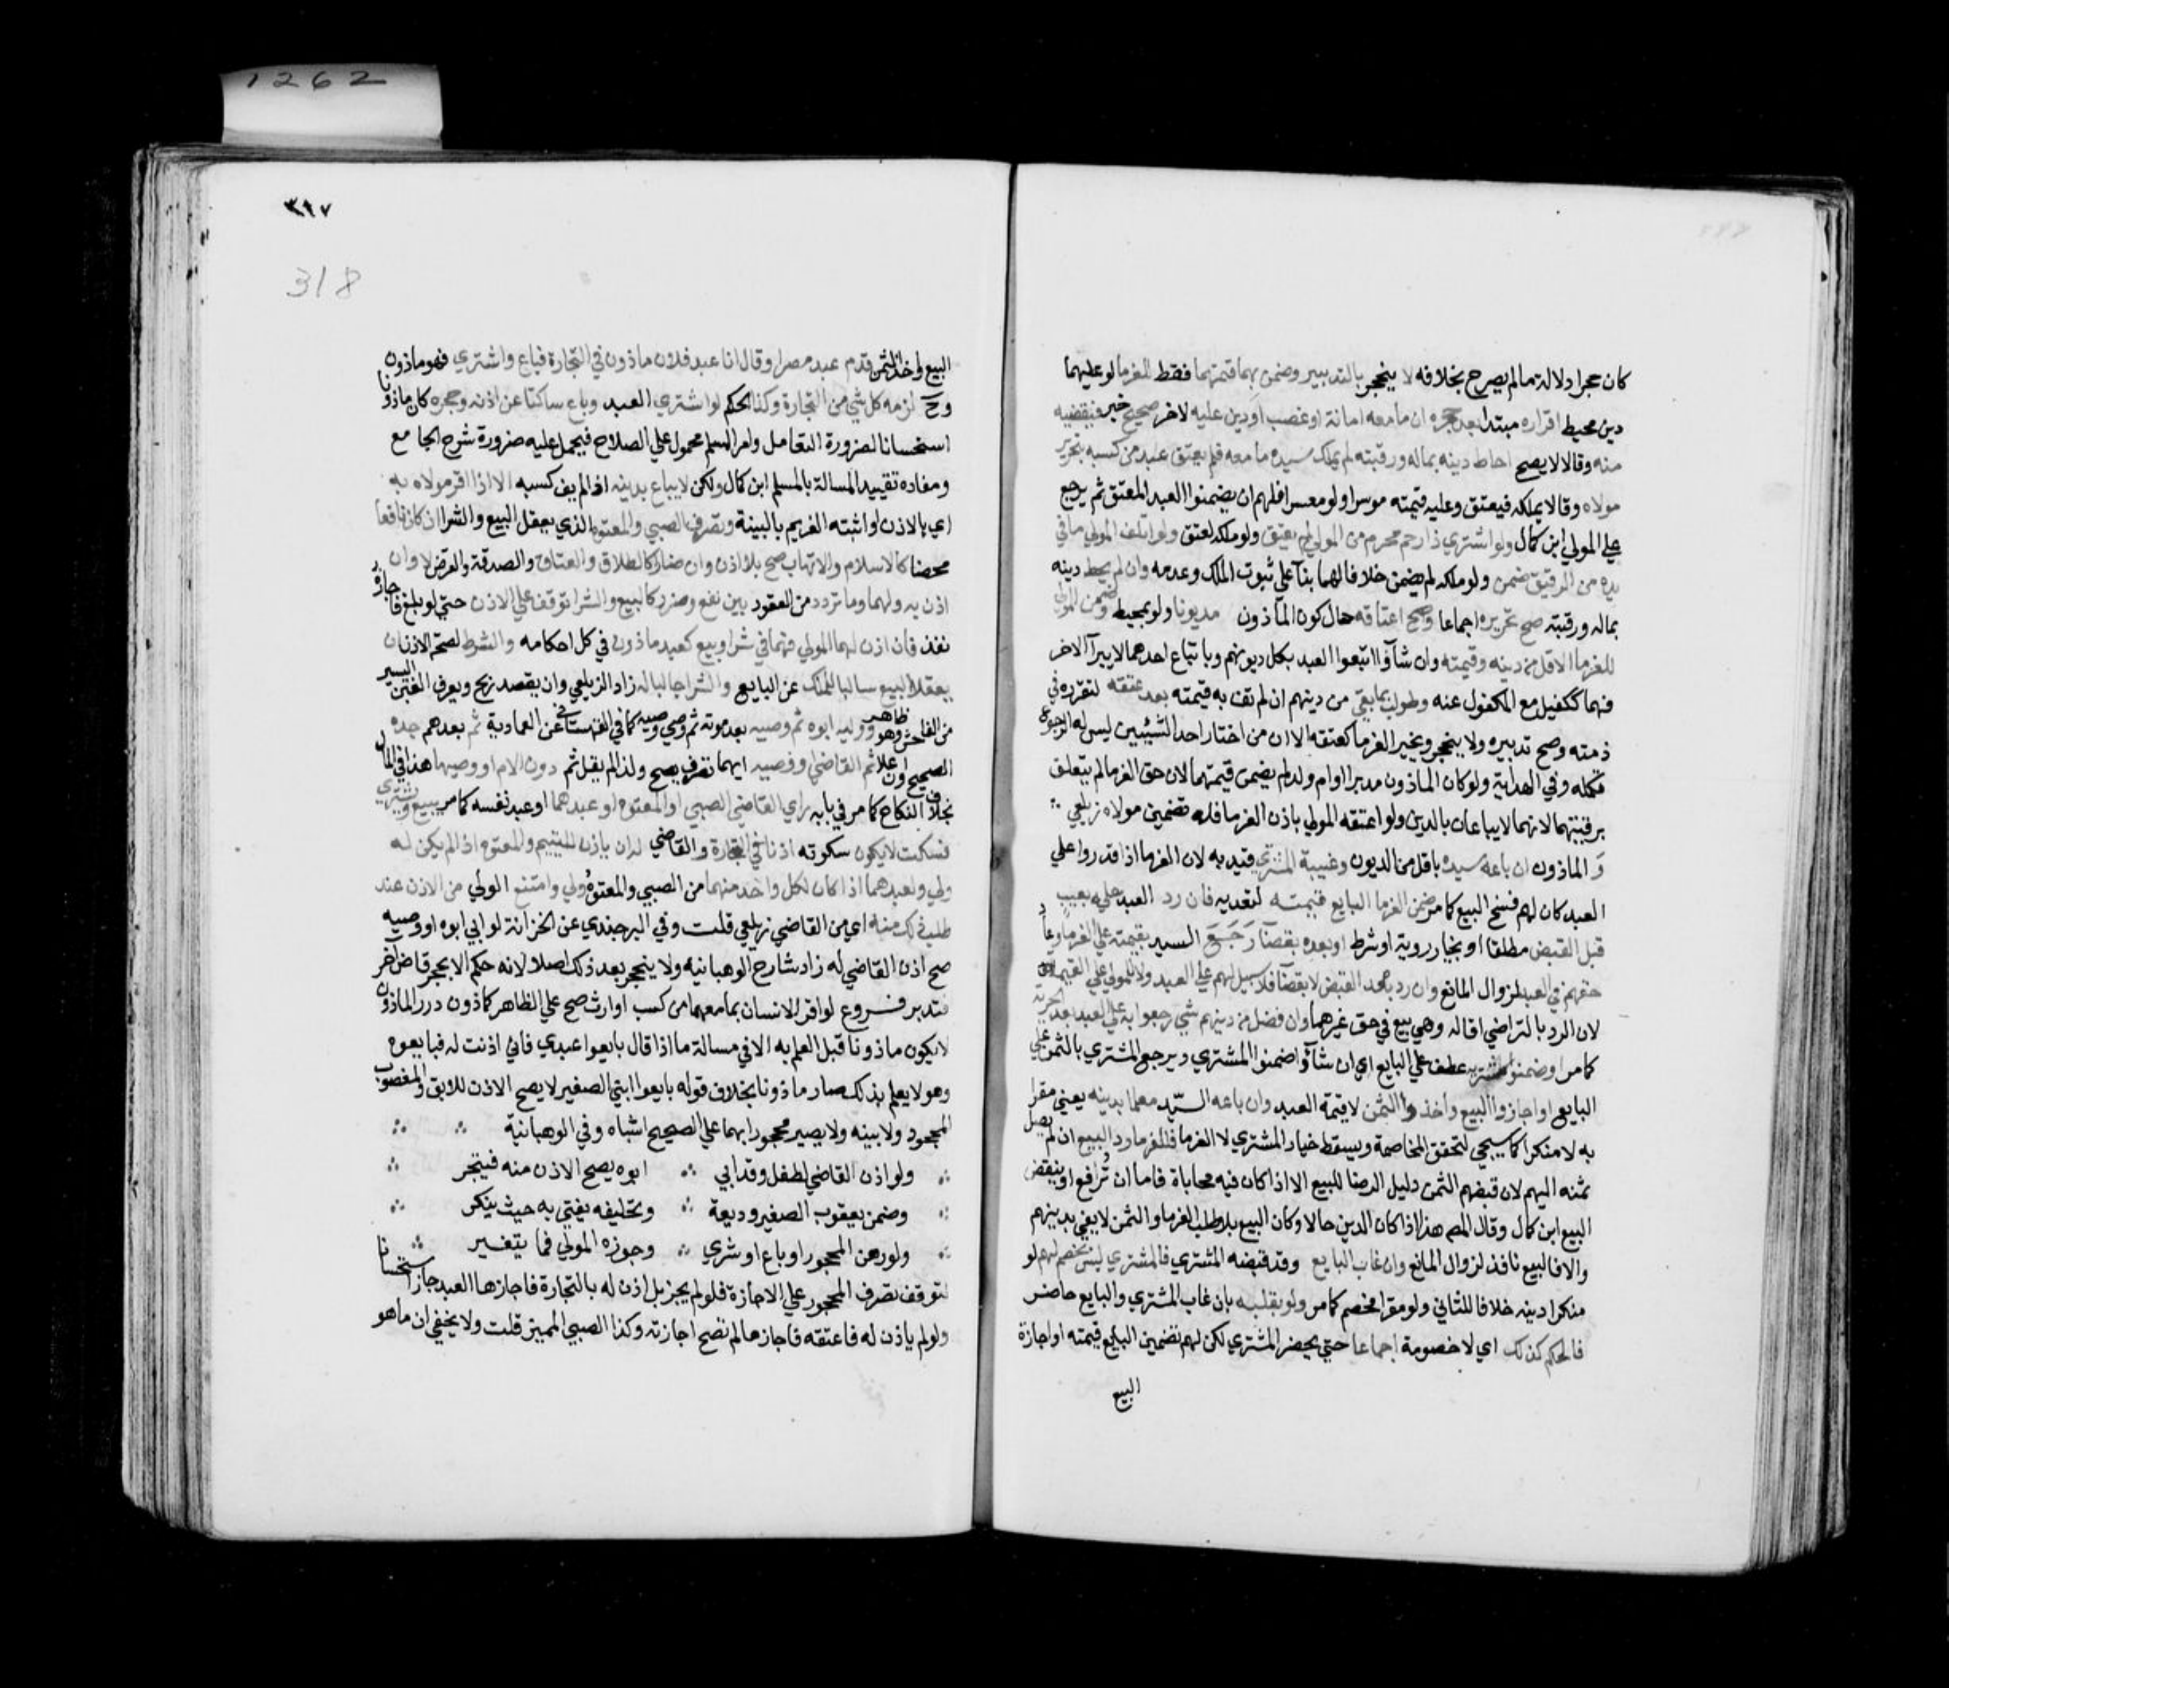 1262
كان حجرا دلالة ما لم يصرح بخلافه لا ينحجر بالتدبير وضمن بهما قيمتهما فقط للغرما لو عليهما
دين محيط اقراره مبتدا بعد حجره ان ما معه امانة او غصب او دين عليه لاخر صحيح خبر فيقضيه
منه وقالا لا يصح احاط دينه بماله ورقبته لم يملك سيده ما معه فلم يعتق عبد من كسبه بتحرير
مولاه وقالا يملكه فيعتق وعليه قيمته موسرا ولو معسرا فلهم ان يضمنوا العبد المعتق ثم يرجع
علي المولي ابن كمال ولو اشتري ذا رحم محرم من المولي لم يعتق ولو ملكه لعتق ولو اتلف المولي ما في
يده من الرقيق ضمن ولو ملكه لم يضمن خلافا لهما بنآ علي ثبوت الملك وعدمه وان لم يحط دينه
بماله ورقبته صح تحريره اجماعا وصح اعتاقه حال كون الماذون مديونا ولو بمحيط وضمن المولي
للغرما الاقل من دينه وقيمته وان شآؤا اتبعوا العبد بكل ديونهم وباتباع احدهما لا يبرآ الاخر
فهما ككفيل مع المكفول عنه وطولب بما بقي من دينهم ان لم تف به قيمته بعد عتقه لتقرره في
ذمته وصح تدبيره ولا ينحجر ويخير الغرما كعتقه الا ان من اختار احد الشيئين ليس له الرجوع
فكمله وفي الهداية ولو كان الماذون مدبرا او ام ولد لم يضمن قيمتهما لان حق الغرما لم يتعلق
برقبتهما لانهما لا يباعان بالدين ولو اعتقه المولي باذن الغرما فلهم تضمين مولاه زيلعي
وَ الماذون ان باعه سيده باقل من الديون وغيبة المشتري قيد به لان الغرما اذا قدروا علي
العبد كان لهم فسخ البيع كما مر ضمن الغرما البايع قيمته لتعديه فان رد العبد عليه بعيب
قبل القبض مطلقا او بخيار روية او شرط او بعده بقضآ رَجَعَ السيد بقيمته علي الغرما وعاد
حقهم في العبد لزوال المانع وان رد بعد القبض لا بقضآ فلا سبيل لهم علي العبد ولا للمولي علي القيمة
لان الرد بالتراضي اقاله وهي بيع في حق غيرهما وان فضل من دينهم شي رجعوا به علي العبد بعد الحرية
كما مر او ضمنوا مشتريه عطف علي البايع اي ان شآؤا ضمنوا المشتري ويرجع المشتري بالثمن علي
البايع او اجازوا البيع واخذوا الثمن لا قيمة العبد وان باعه السيّد معلما بدينه يعني مقرا
به لا منكرا كما سيجي لتحقق المخاصمة ويسقط خيار المشتري لا الغرما فللغرما رد البيع ان لم يصل
ثمنه اليهم لان قبضهم الثمن دليل الرضا للبيع الا اذا كان فيه محاباة فاما ان ترافع او ينقض
البيع ابن كمال وقال المص هذا اذا كان الدين حالا وكان البيع بلا طلب الغرما والثمن لا يفي بدينهم
والا فالبيع نافذ لزوال المانع وان غاب البايع وقد قبضه المشتري فالمشتري ليس بخصم لهم لو
منكرا دينه خلافا للثاني ولو مقرا فخصم كما مر ولو بقلبه بان غاب المشتري والبايع حاضر
فالحكم كذلك اي لا خصومة اجماعا حتي يحضر المشتري لكن لهم تضمين البايع قيمته او اجازة
البيع
٣١٧
318
البيع واخذ الثمن قدم عبد مصرا وقال انا عبد فلان ماذون في التجارة فباع واشتري فهو ماذون
وح لزمه كل شي من التجارة وكذا الحكم لو اشتري العبد وباع ساكتا عن اذنه وحجره كان ماذونا
استحسانا لضرورة التعامل وامر المسلم محمول علي الصلاح فيحمل عليه ضرورة شرح الجامع
ومفاده تقييد المسالة بالمسلم ابن كمال ولكن لا يباع بدينه اذا لم يف كسبه الا اذا اقر مولاه به
اي بالاذن او اثبته الغريم بالبينة وتصرف الصبي والمعتوه الذي يعقل البيع والشرا ان كان نافعا
محضا كالاسلام والاتهاب صح بلا اذن وان ضارا كالطلاق والعتاق والصدقة والقرض لا وان
اذن به وليهما وما تردد من العقود بين نفع وضرر كالبيع والشرا توقف علي الاذن حتي لو بلغ فاجازه
نفذ فان اذن لهما المولي فهما في شرا وبيع كعبد ماذون في كل احكامه والشرط لصحة الاذن ان
يعقلا البيع سالبا للملك عن البايع والشرا جالبا له زاد الزيلعي وان يقصد ربح ويعرف الغبن اليسير
من الفاحش وهو ظاهر ووليه ابوه ثم وصيه بعد موته ثم وصي وصيه كما في القهستاني عن العمادية ثم بعدهم جده
الصحيح وان علا ثم القاضي او وصيه ايهما تصرف يصح ولذا لم يقل ثم دون الام او وصيها هذا في المال
بخلاف النكاح كما مر في بابه راي القاضي الصبي او المعتوه او عبدهما او عبد نفسه كما مر يبيع ويشتري
فسكت لا يكون سكوته اذنا في التجارة والقاضي له ان ياذن لليتيم والمعتوه اذا لم يكن له
ولي ولعبدهما اذا كان لكل واحد منهما من الصبي والمعتوه ولي وامتنع الولي من الاذن عند
طلب ذلك منه اي من القاضي زيلعي قلت وفي البرجندي عن الخزانة لو ابي ابوه او وصيه
صح اذن القاضي له زاد شارح الوهبانيه ولا ينحجر بعد ذلك اصلا لانه حكم الا بحجر قاض آخر
فتدبر فــروع لو اقر الانسان بما معهما من كسب او ارث صح علي الظاهر كماذون درر الماذون
لا يكون ماذونا قبل العلم به الا في مسالة ما اذا قال بايعوا عبدي فاني اذنت له فبايعوه
وهو لا يعلم بذلك صار ماذونا بخلاف قوله بايعوا ابني الصغير لا يصح الاذن للابق والمغصوب
المجحود ولا بينه ولا يصير محجورا بهما علي الصحيح اشباه وفي الوهبانية
ولو اذن القاضي لطفل وقد ابي ∴ ابوه يصح الاذن منه فيتجر
وضمن يعقوب الصغير وديعة ∴ وتحليفه يفتي به حيث ينكر
ولو رهن المحجور او باع او شري ∴ وجوزه المولي فما يتغير
لتوقف تصرف المحجور علي الاجازة فلو لم يجز بل اذن له بالتجارة فاجازها العبد جاز استحسانا
ولو لم ياذن له فاعتقه فاجازها لم تصح اجازته وكذا الصبي المميز قلت ولا يخفي ان ما هو